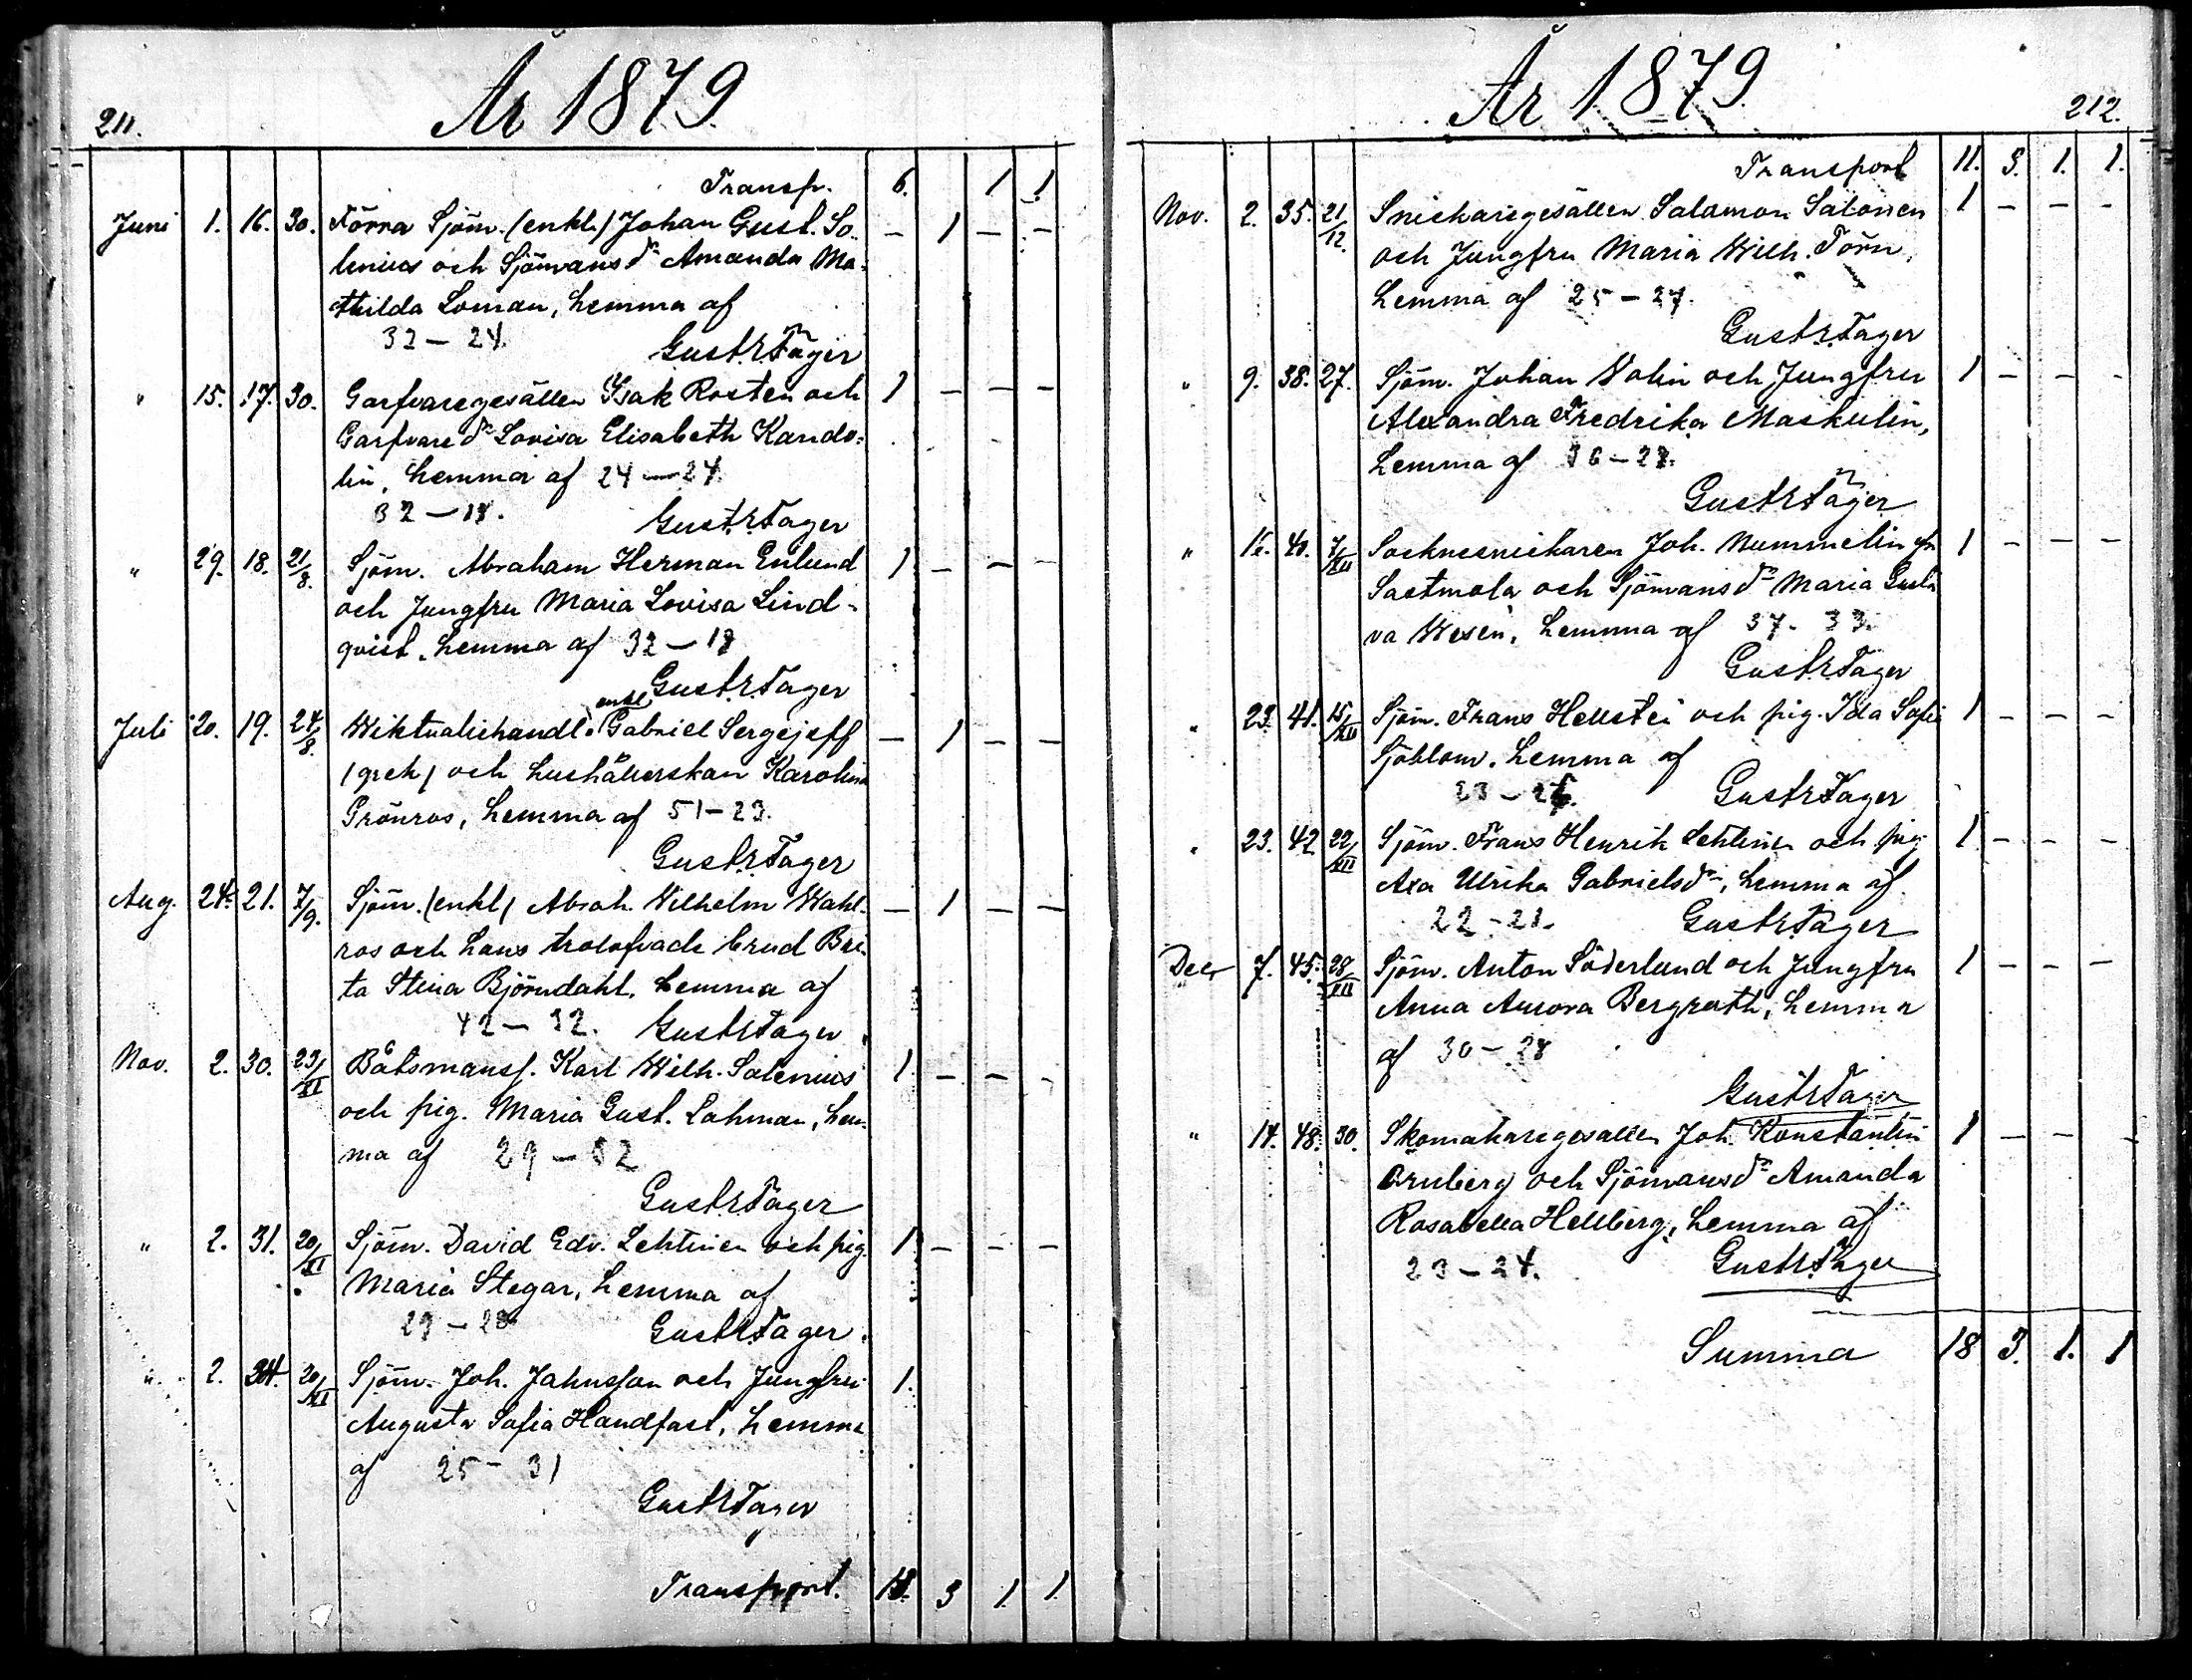 År 1879
211.
Transp. 6. 1 1
Juni 1. 16. 30. Förra Sjöm. (enkl.) Johan Gust. So- — 1 — —
lenius och Sjömansd:r Amanda Ma-
thilda Loman, hemma af
32 — 24. Gust. R. Tager
" 15. 17. 30. Garfvaregesällen Isak Rosten och 1 — — —
Garfvared:r Lovisa Elisabeth Kando-
lin, hemma af 24 — 24.
32 — 18. Gust. R. Tager
" 29. 18. 21/8. Sjöm. Abraham Herman Enlund 1 — — —
och Jungfru Maria Lovisa Lind-
qvist, hemma af 32 — 18
Gust. R. Tager
Juli 20. 19. 24/8. Wiktualiehandl. enkl Gabriel Sergejeff — 1 — —
(grek) och hushållerskan Karolina
Grönros, hemma af 51 — 23.
Gust. R. Tager
Aug. 24. 21. 7/9. Sjöm. (enkl) Abrah. Wilhelm Wahl- — 1 — —
ros och hans trolofvade brud Bri-
ta Stina Björndahl, hemma af
42 — 32. Gust. R. Tager
Nov. 2. 30. 23/XI Båtsmansf. Karl Wilh. Salenius 1. — — —
och pig. Maria Gust. Lahman, hem-
ma af 29 — 32
Gust. R. Tager
" 2. 31. 20/XI Sjöm. David Edv. Lehtinen och pig. 1. — — —
Maria Stegar, hemma af
29 — 28 Gust. R. Tager
" 2. 34. 20/XI Sjöm. Joh. Jahnsson och Jungfru 1.
Augusta Sofia Handfast, hemma
af 25 — 31
Gust. R. Tager
Transport. 11. 3 1. 1.
År 1879
212.
Transport 11. 3. 1. 1.
Nov. 2. 35. 21/12. Snickaregesällen Salamon Salonen 1 — — —
och Jungfru Maria Wilh. Törn,
hemma af 25 — 27.
Gust. R. Tager
" 9. 38. 27. Sjöm. Johan Nolin och Jungfru 1 — — —
Alexandra Fredrika Maskulin,
hemma af 36 — 27.
Gust. R. Tager
" 16. 40. 7/XII Socknesnickaren Joh. Nummelin fr. 1 — — —
Sastmola och Sjömansd:r Maria Gusta
va Wesen, hemma af 37 - 33.
Gust. R. Tager
" 23. 41. 15/XII Sjöm. Frans Hellsten och pig. Ida Sofia 1 — — —
Sjöblom, hemma af
23 — 26. Gust. R. Tager
" 23. 42 22/XII Sjöm. Frans Henrik Lehtinen och pig. 1 — — —
Axa Ulrika Gabrielsd:r, hemma af
22 — 21. Gust. R. Tager
Decr 7. 45. 28/XII Sjöm. Anton Söderlund och Jungfru 1 — — —
Anna Aurora Bergroth, hemma
af 30 — 28
Gust. R. Tager
" 14. 48. 30. Skomakaregesällen Joh. Konstantin 1 — — —
Arnberg och Sjömansd:r Amanda
Rosabella Hellberg, hemma af
23 — 24. Gust. R. Tager
Summa 18 3. 1. 1